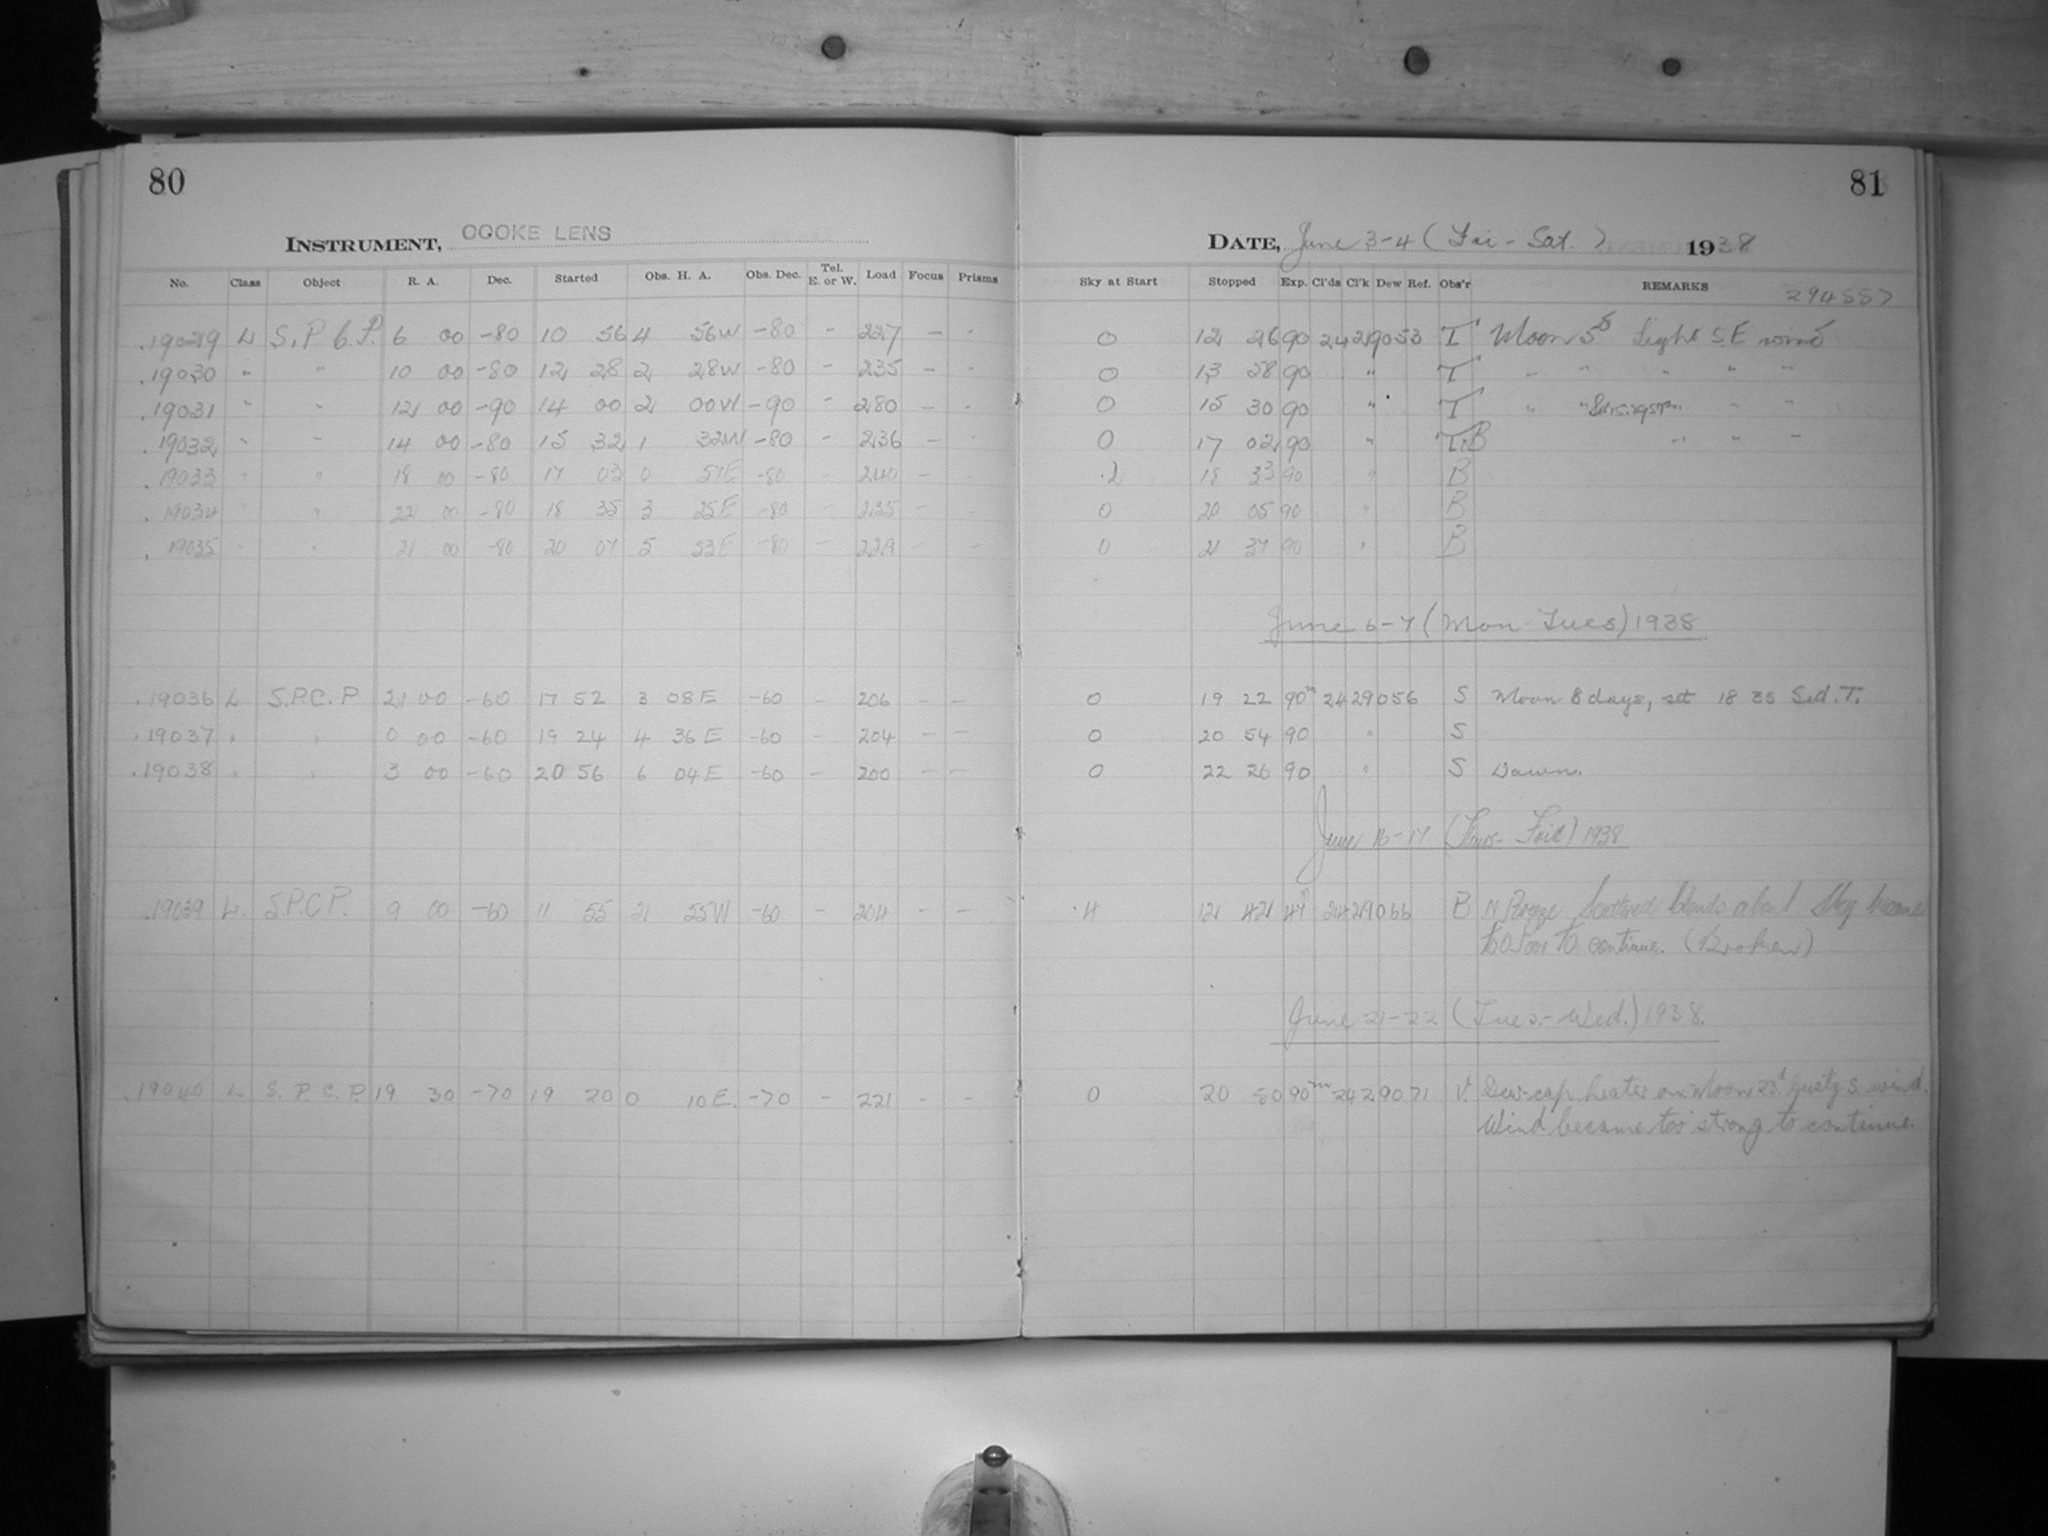 80
81
INSTRUMENT, COOKE LENS
DATE, June 3-4 (Fri - Sat.) 1938
No. Class Object R. A. Dec. Started Obs. H. A. Obs. Dec. Tel. E. or W. Load Focus Prisms Sky at Start Stopped Exp. Cl'ds Cl'k Dew Ref. Obs'r REMARKS
294557
.19029 L S.P.C.P. 6 00 -80 10 56 4 56W -80 - 227 - - 0 12 26 90 2429053 T Moon 5d Light S.E wind
.19030 " " 10 00 -80 12 28 2 28W -80 - 235 - - 0 13 58 90 " T " " " " "
.19031 " " 12 00 -90 14 00 2 00W -90 - 280 - - 0 15 30 90 " T " " " "
.19032 " " 14 00 -80 15 32 1 32W -80 - 236 - - 0 17 02 90 " T.B " " "
.19033 " " 18 00 -80 17 03 0 57E -80 - 240 - .2 18 33 90 " B
.19034 " " 22 00 -80 18 35 3 25E -80 - 235 - - 0 20 05 90 " B
. 19035 " " 21 00 -80 20 07 5 53E -80 - 229 - - 0 21 37 90 " B
June 6-7 (Mon-Tues) 1938
.19036 L S.P.C.P 21 00 -60 17 52 3 08E -60 - 206 - - 0 19 22 90m 2429056 S Moon 8 days, set 18 35 Sid. T.
.19037 " " 0 00 -60 19 24 4 36E -60 - 204 - - 0 20 54 90 " S
.19038 " " 3 00 -60 20 56 6 04E -60 - 200 - - 0 22 26 90 " S Dawn.
June 16-17 (Thurs- Frid) 1938
.19039 L. S.P.C.P. 9 00 -60 11 55 2 55W -60 - 204 - - .4 12 42 47 2429066 B N Breeze Scattered Clouds about. Sky became
too Poor to continue. (Broken)
June 21-22 (Tues.-Wed.) 1938.
.19040 L S.P.C.P. 19 30 -70 19 20 0 10E. -70 - 221 - - 0 20 50 90m 2429071 V. Dew-cap heater on. Moon 23d. Gusty S. wind.
Wind became too strong to continue.